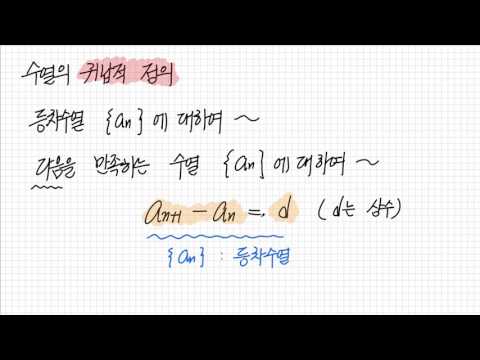 수열의 귀납적 정의
등차수열 {an}에 대하여 ~
다음을 만족하는 수열 {an}에 대하여 ~
an+1 - an = d (d는 상수)
{an} : 등차수열